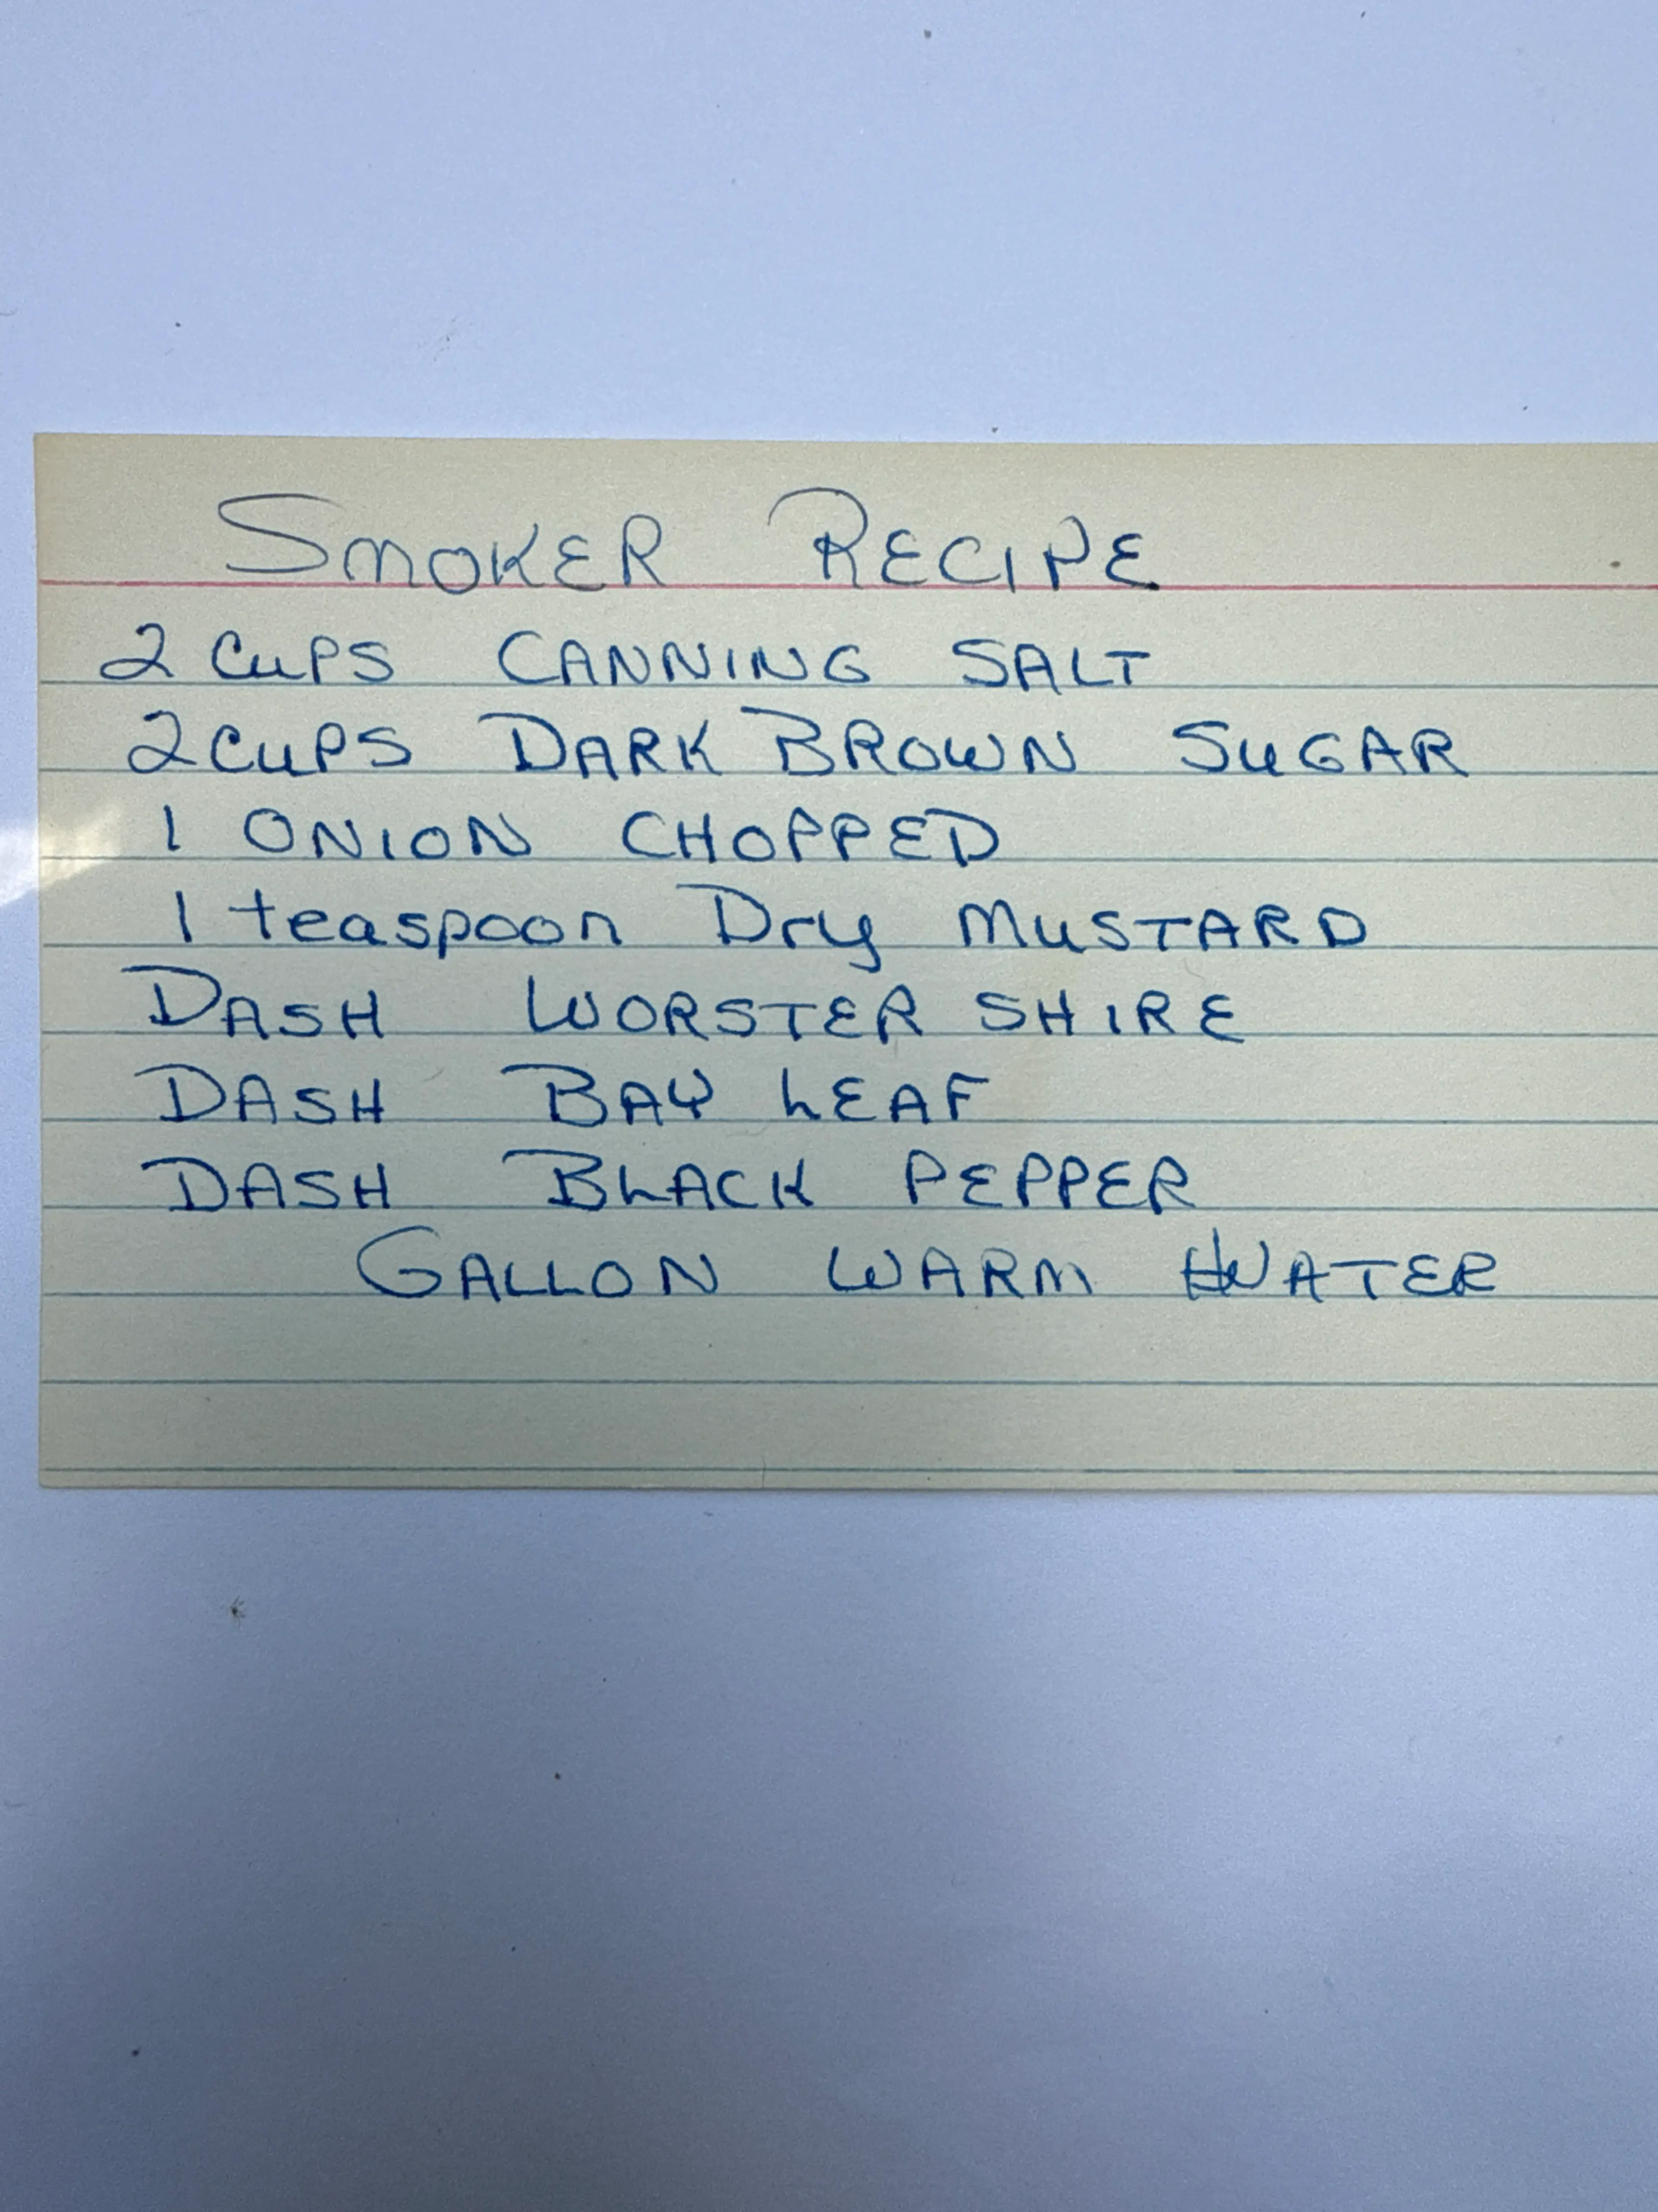 SMOKER RECIPE
2 CuPS CANNING SALT
2 CuPS DARK BROWN SuGAR
1 ONION CHOPPED
1 teaspoon Dry MuSTARD
DASH WORSTER SHIRE
DASH BAY LEAF
DASH BLACK PEPPER
GALLON WARM WATER